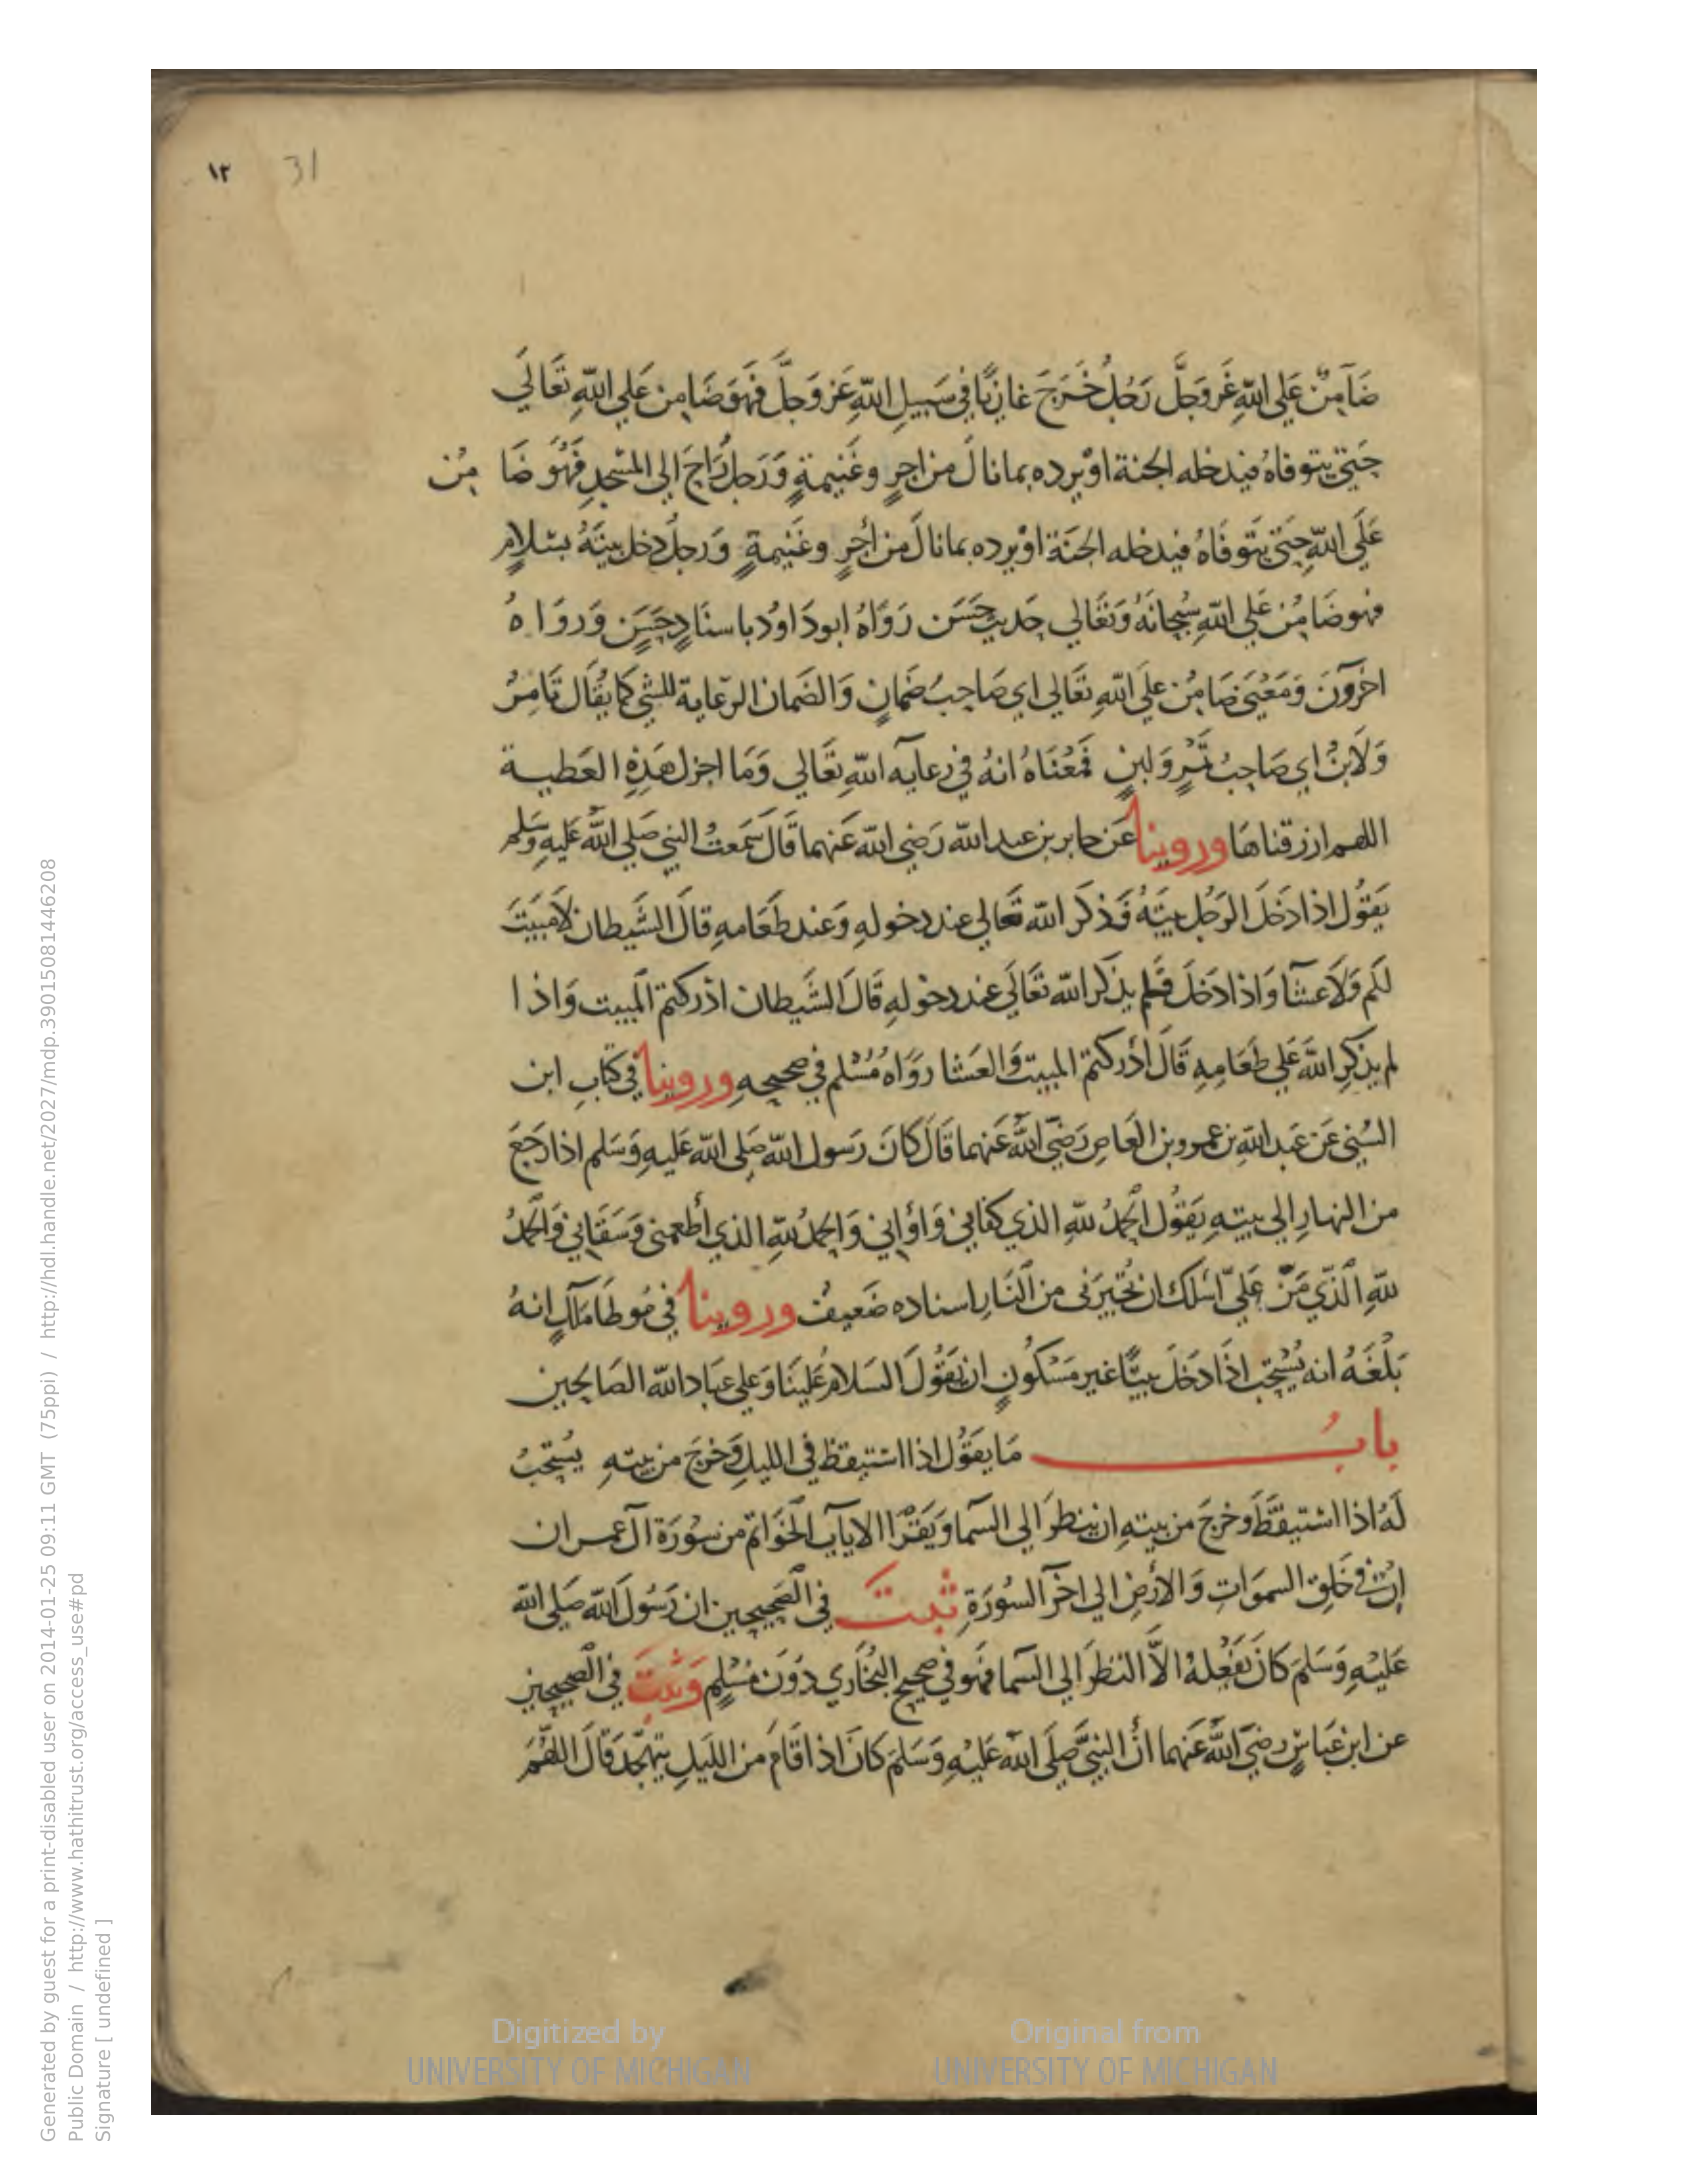 ١٢ 31
ضَآمِنٌ عَلي اللّهِ عَزوَجَلَّ رَجُلٌ خَرَجَ غازيًا في سَبيلِ اللّهِ عَز وَجلَّ فهُوَ ضَامِن عَلي اللّهِ تَعَالَي
حَتيّ يتوفاهُ فيدخله الجنة اوْيرده بمانالَ من اجرٍ وغَنيمةٍ وَرَجلٌ رَاحَ الي المسْجدِ فهُوَ ضَا مِن
عَلَي اللّهِ حَتيّ يتَوفَاهُ فيدخله الجنَة اوْيرده بمانالَ من أجرٍ وغَنيمةٍ وَرجلٌ دَخل بيتَهُ بسَلامٍ
فهوضَامِنٌ عَلي اللّهِ سُبحانَهُ وَتَعَالي حَديث حَسَن رَوَاهُ ابودَاوُد باسنَادٍ حَسَنٍ وَروَا هُ
اخرُونَ وَمَعْنَي ضَامِنٌ علَي اللّهِ تَعَالي اي صَاحِبُ ضَمانٍ وَالضَمان الرّعاية للشي كَمَا يُقَال تَامِرٌ
وَلَابنٌ اي صَاحِبُ تَمْرٍ وَلبنٍ فَمعْنَاهُ انهُ في رعايه اللّهِ تَعَالي وَمَا اجزل هَذِهِ العَطيـة
اللهـم ارزقناهَا وروينا عَن جابر بن عبد اللّه رَضي اللّه عَنهما قَالَ سَمعتُ النبي صَلي اللّه عَليهِ وَسَلم
يَقوُل اذا دَخَلَ الرَجُل بيتَهُ فَذكَر اللّه تَعَالي عند دخولهِ وَعند طَعَامهِ قالَ الشَيطان لَامبيتَ
لكَم وَلاعشَا وَاذا دَخَلَ فَلم يذكَر اللّه تَعَالَي عند دخولهِ قَالَ الشَيطان ادْركتم المَبيت وَاذ ا
لم يذكرِ اللّهَ عَلي طَعَامِهِ قَالَ أدْركتم المبيت وَالعَشا رَوَاه مُسْلم في صحيحِهِ وروينا في كتَابِ ابن
السُني عَن عَبد اللّهِ بن عمروبن العَاصِ رَضيَ اللّهُ عَنهما قَالَ كَانَ رَسول اللّه صَلي اللّه عَليهِ وَسَلم اذا رَجعَ
من النهارِ الي بيتهِ يَقوُل الحمدُ للّهِ الذي كفاني وَاوَاني وَالحمدُ للّهِ الذي أطعمني وَسَقَاني وَالحمدُ
للّهِ الَّذي مَنّ عَليّ اسْلك ان تُجيرَني من النَارِ اسناده ضَعيفٌ وروينا في مُوطا مَالكٍ انهُ
بَلَغَهُ انه يُسْتَحب اذَا دَخَلَ بيتًا غير مَسْكُونٍ ان يَقوُلَ السَلامُ عَلينَا وَعلي عِبَاد اللّه الصَالحين
بابُ مَا يَقوُل اذا استيقظ في الليلِ وَخَرجَ من بيتهِ يُستَحَبُ
لَهُ اذا استيقَظَ وَخرجَ من بيتهِ ان ينظرَ الي السَما وَيَقرَا الايات الخَوَاتم من سُورَة ال عمـران
إنّ في خَلقِ السموَاتِ وَالارْض الي اخرَ السُورَةِ ثبتَ في الصَحيحين ان رَسُول اللّه صَلي اللّه
عَليْهِ وَسَلمَ كَانَ يَفعلهُ الاَّ النظرَ الي السَما فهُو في صحيحِ البُخَاري دوُنَ مُسْلمٍ وَثبتَ في الصحيحين
عن ابن عبَاسٍ رضيَ اللّهُ عَنهما أنَّ النبيَّ صلَي اللّه عَليْهِ وَسَلمَ كَانَ اذا قَامَ من الليلِ يتهجَّد قَالَ اللهُمَ
Digitized by
UNIVERSITY OF MICHIGAN
Original from
UNIVERSITY OF MICHIGAN
Generated by guest for a print-disabled user on 2014-01-25 09:11 GMT (75ppi) / http://hdl.handle.net/2027/mdp.39015081446208
Public Domain / http://www.hathitrust.org/access_use#pd
Signature [ undefined ]